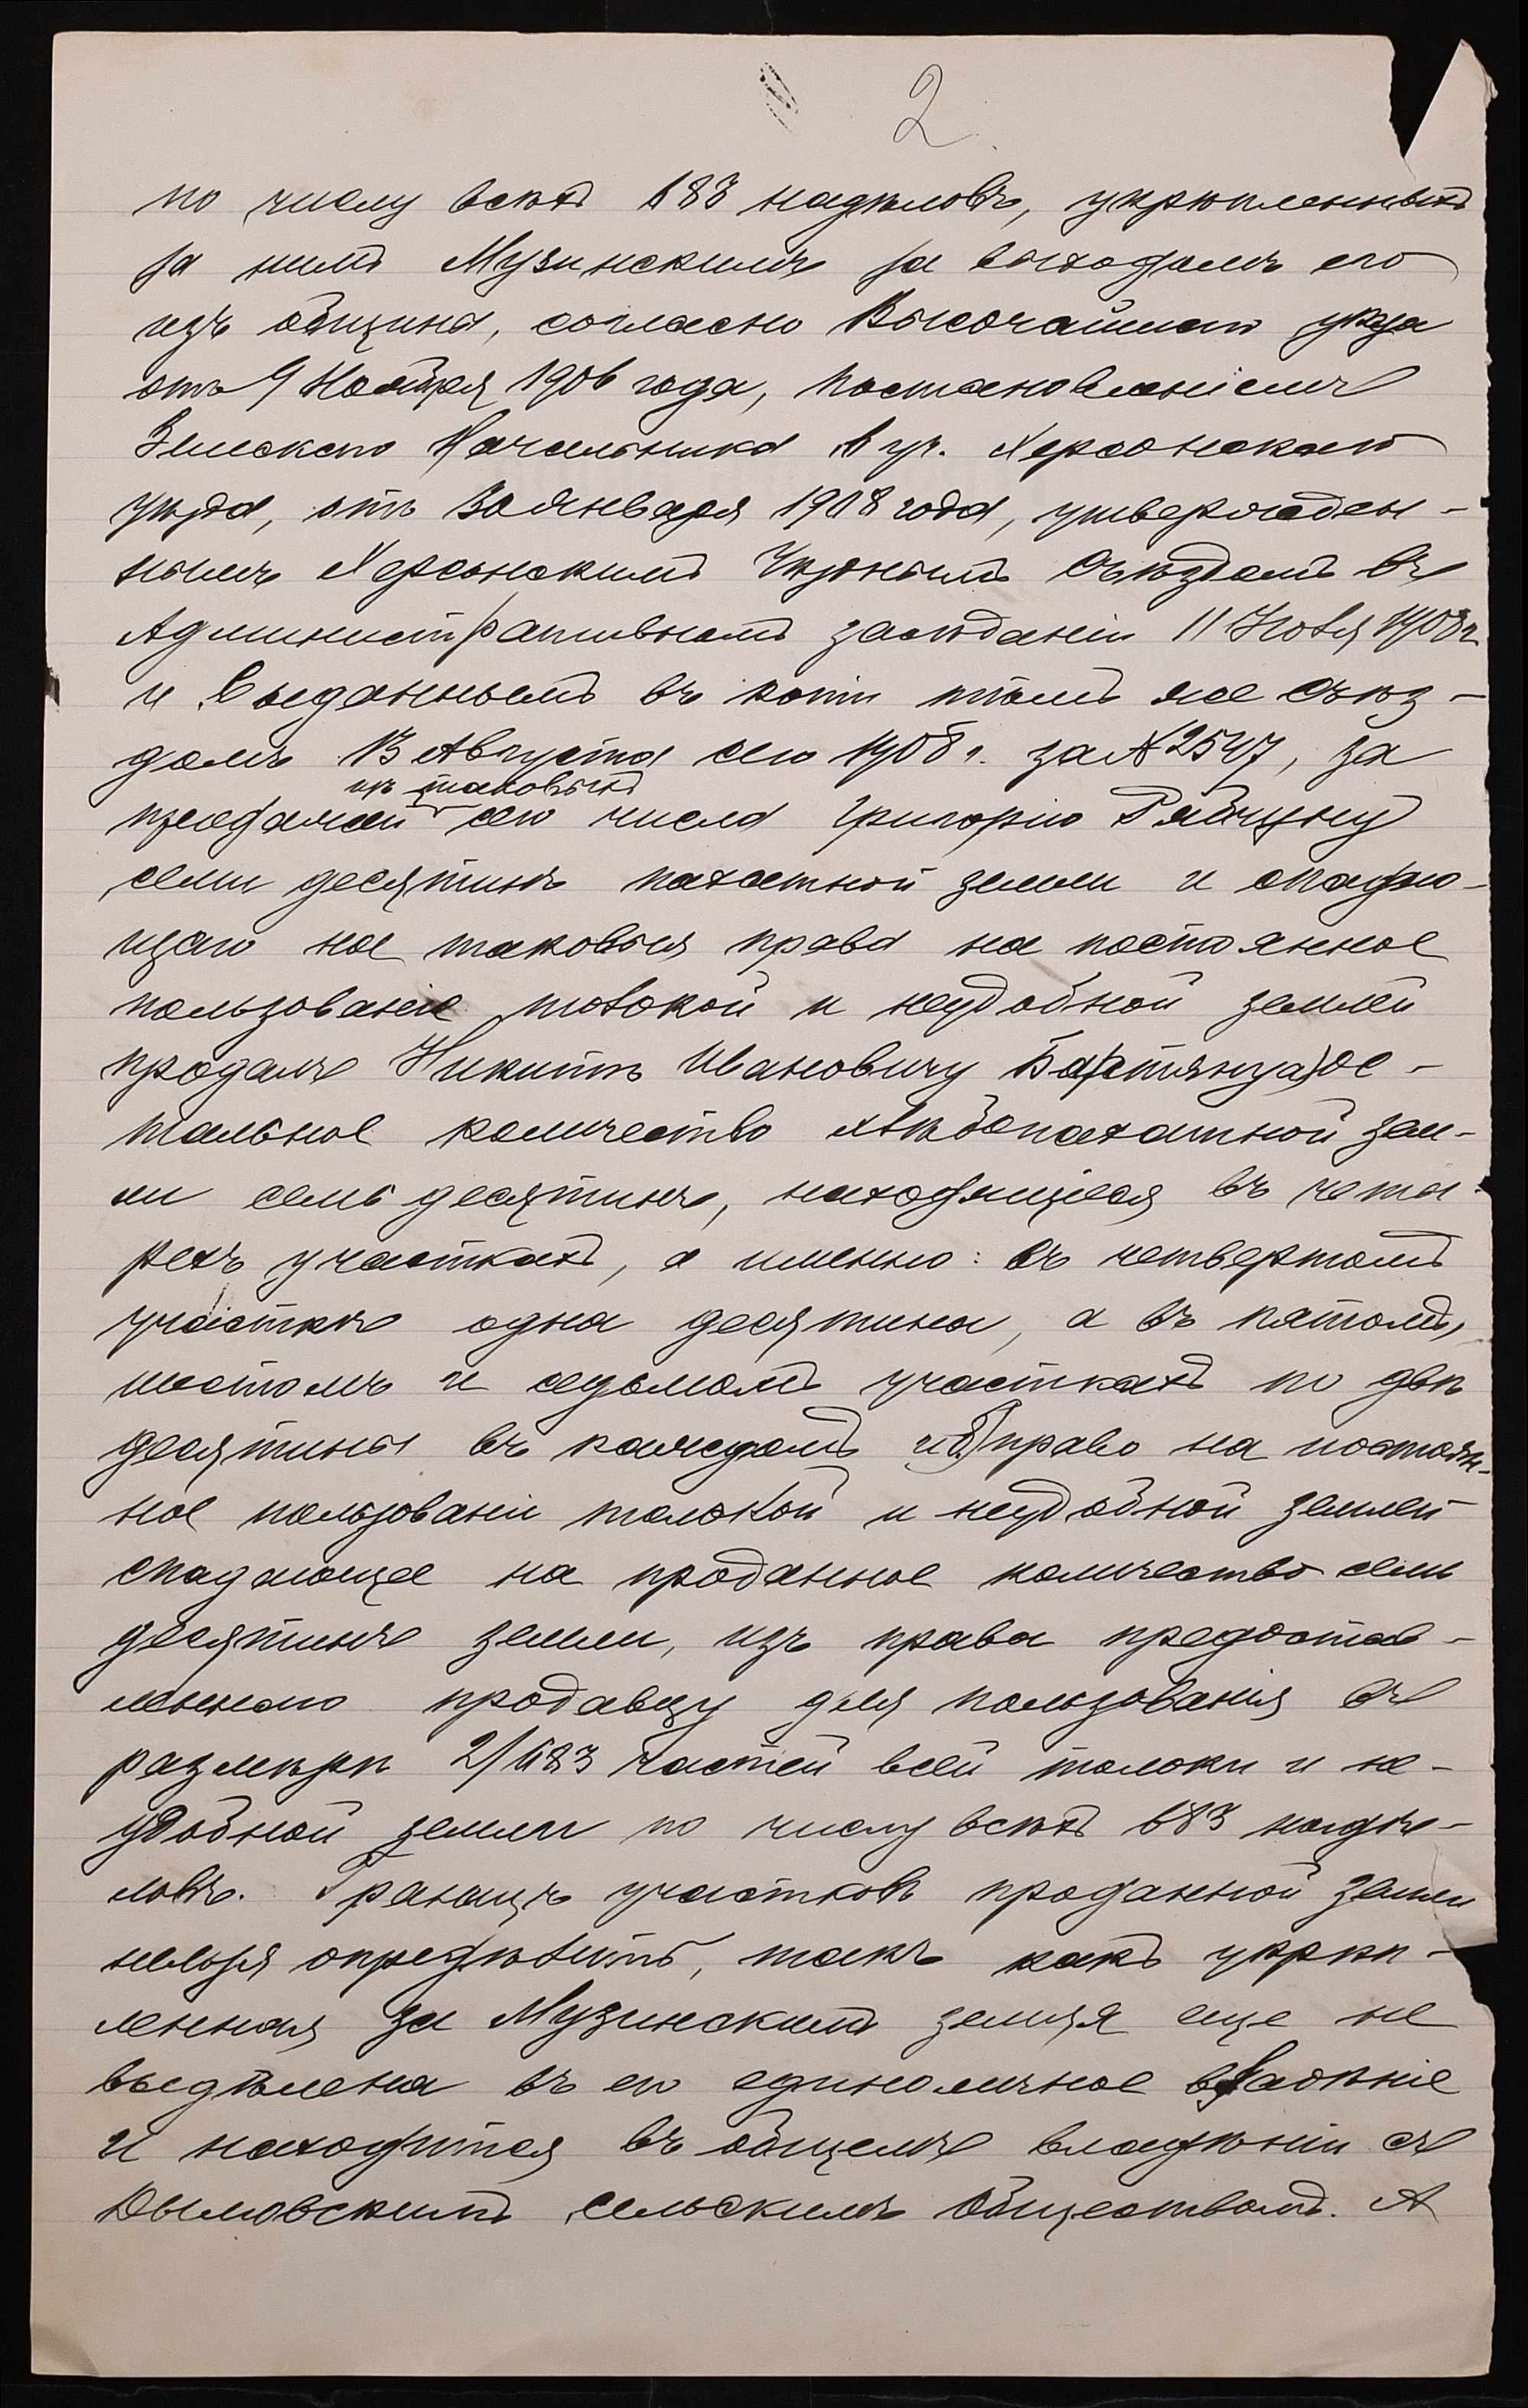 2
по числу всѣхъ 683 надѣловъ, укрѣпленныхъ
за нимъ Музинскимъ за выходомъ его
изъ общины, согласно Высочайшаго указа
отъ 9 Ноября 1906 года, постановленіемъ
Земскаго Начальника 1 уч. Херсонскаго
уѣзда, отъ 30 Января 1908 года, утвержден-
нымъ Херсонскимъ Уѣзднымъ Съѣздомъ въ
Административномъ засѣданіи 11 Іюля 1908 г.
и выданнымъ въ копіи тѣмъ же Съѣз-
домъ 13 Августа сего 1908 г. за № 2547, за
изъ таковыхъ
продажей сего числа Григорію Рябчуну
семи десятинъ пахатной земли и спадаю-
щаго на таковыя права на постоянное
пользованіе толокой и неудобной землей
продалъ Никитѣ Ивановичу Бартянуа) ос-
тальное количество хлѣбопахатной зем-
ли семь десятинъ, находящіяся въ четы-
рехъ участкахъ, а именно: въ четвертомъ
участкѣ одна десятина, а въ пятомъ,
шестомъ и седьмомъ участкахъ по двѣ
десятины въ каждомъ и б) право на постоян-
ное пользованіи толокой и неудобной землей
спадающее на проданное количество семь
десятинъ земли, изъ права предостав-
леннаго продавцу для пользованія въ
размѣрѣ 2/683 частей всей толоки и не-
удобной земли по числу всѣхъ 683 надѣ-
ловъ. Границъ участковъ проданной земли
нельзя опредѣлить, такъ какъ укрѣп-
ленная за Музинскимъ земля еще не
выдѣлена въ его единоличное владѣніе
и находится въ общемъ владѣніи съ
Дымовскимъ сельскимъ Обществомъ. А